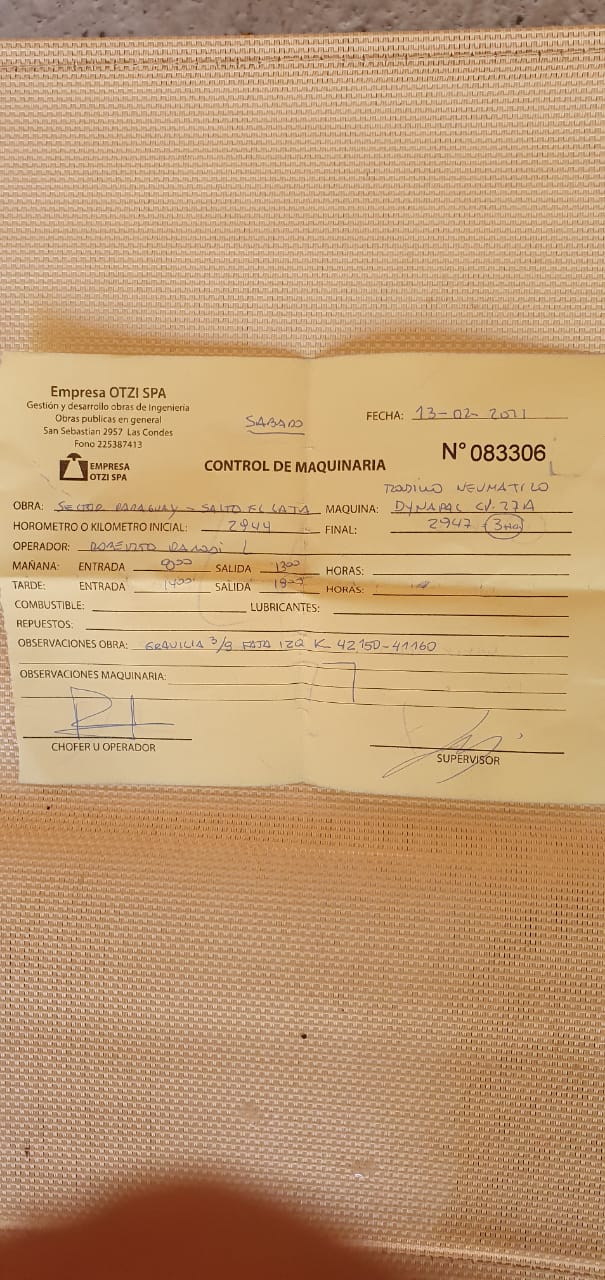 Empresa OTZI SPA
Gestión y desarrollo obras de Ingeniería
Obras publicas en general
San Sebastian 2957 Las Condes
Fono 225387413
EMPRESA
OTZI SPA
SABADO
FECHA: 13-02-2021
CONTROL DE MAQUINARIA
N° 083306
RODILLO NEUMATICO
OBRA: SECTOR PARAGUAY - SALTO EL MAQUINA: DYNAPAC CV. 27A
HOROMETRO O KILOMETRO INICIAL: 2944 FINAL: 2947
OPERADOR: ROBERTO
MAÑANA: ENTRADA 8:00 SALIDA 13:00 HORAS:
TARDE: ENTRADA 14:00 SALIDA HORAS:
COMBUSTIBLE: LUBRICANTES:
REPUESTOS:
OBSERVACIONES OBRA: GRAVILLA 3/8 FAJA IZQ K 42150-41160
OBSERVACIONES MAQUINARIA:
CHOFER U OPERADOR
SUPERVISOR